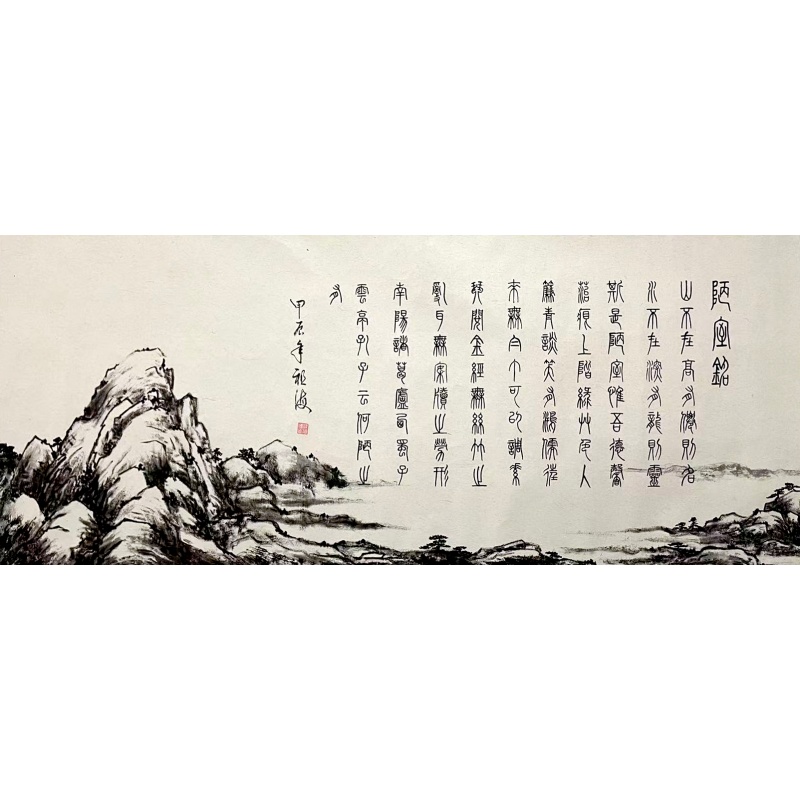 陋室銘
山不在高有僊則名
水不在深有龍則靈
斯是陋室惟吾德馨
苔痕上階綠艸色入
簾青談笑有鴻儒往
來無白丁可以調素
琴閱金經無絲竹之
亂耳無案牘之勞形
南陽諸葛廬西蜀子
雲亭孔子云何陋之
有
甲辰年